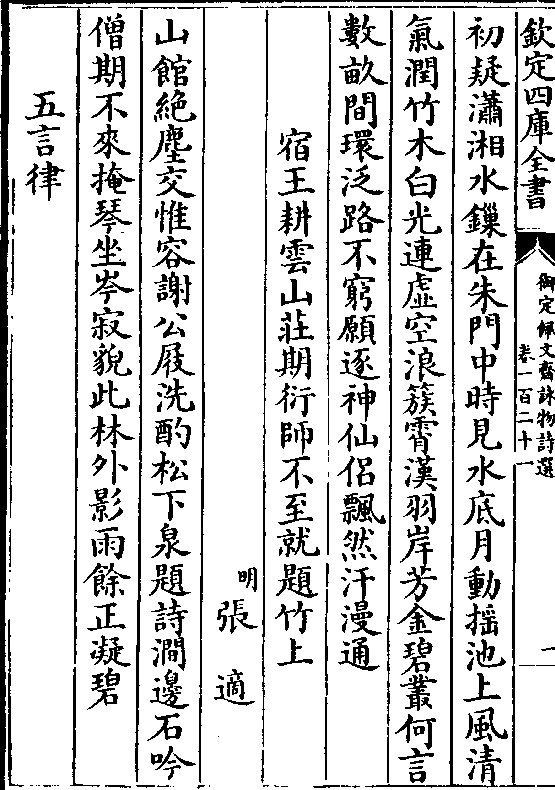 欽定四庫全書
御定佩文齋詠物詩選
卷一百二十一
一
初疑瀟湘水鏁在朱門中時見水底月動揺池上風清
氣潤竹木白光連虛空浪簇霄漢羽岸芳金碧叢何言
數畝間環泛路不窮願逐神仙侣飄然汗漫通
宿王耕雲山莊期衍師不至就題竹上
明張適
山館絶塵交惟容謝公屐洗酌松下泉題詩澗邊石吟
僧期不來掩琴坐岑寂貌此林外影雨餘正凝碧
五言律